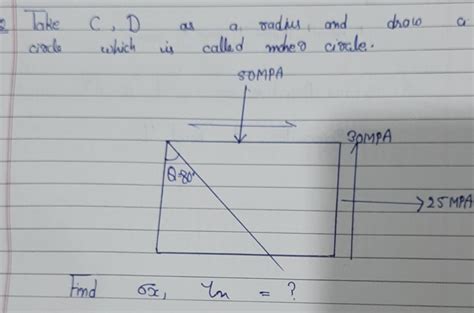 Take C, D as a radius and draw a
circle which is called moher circle.
50MPA
30MPA
θ=30°
25MPA
Find σx, τn = ?